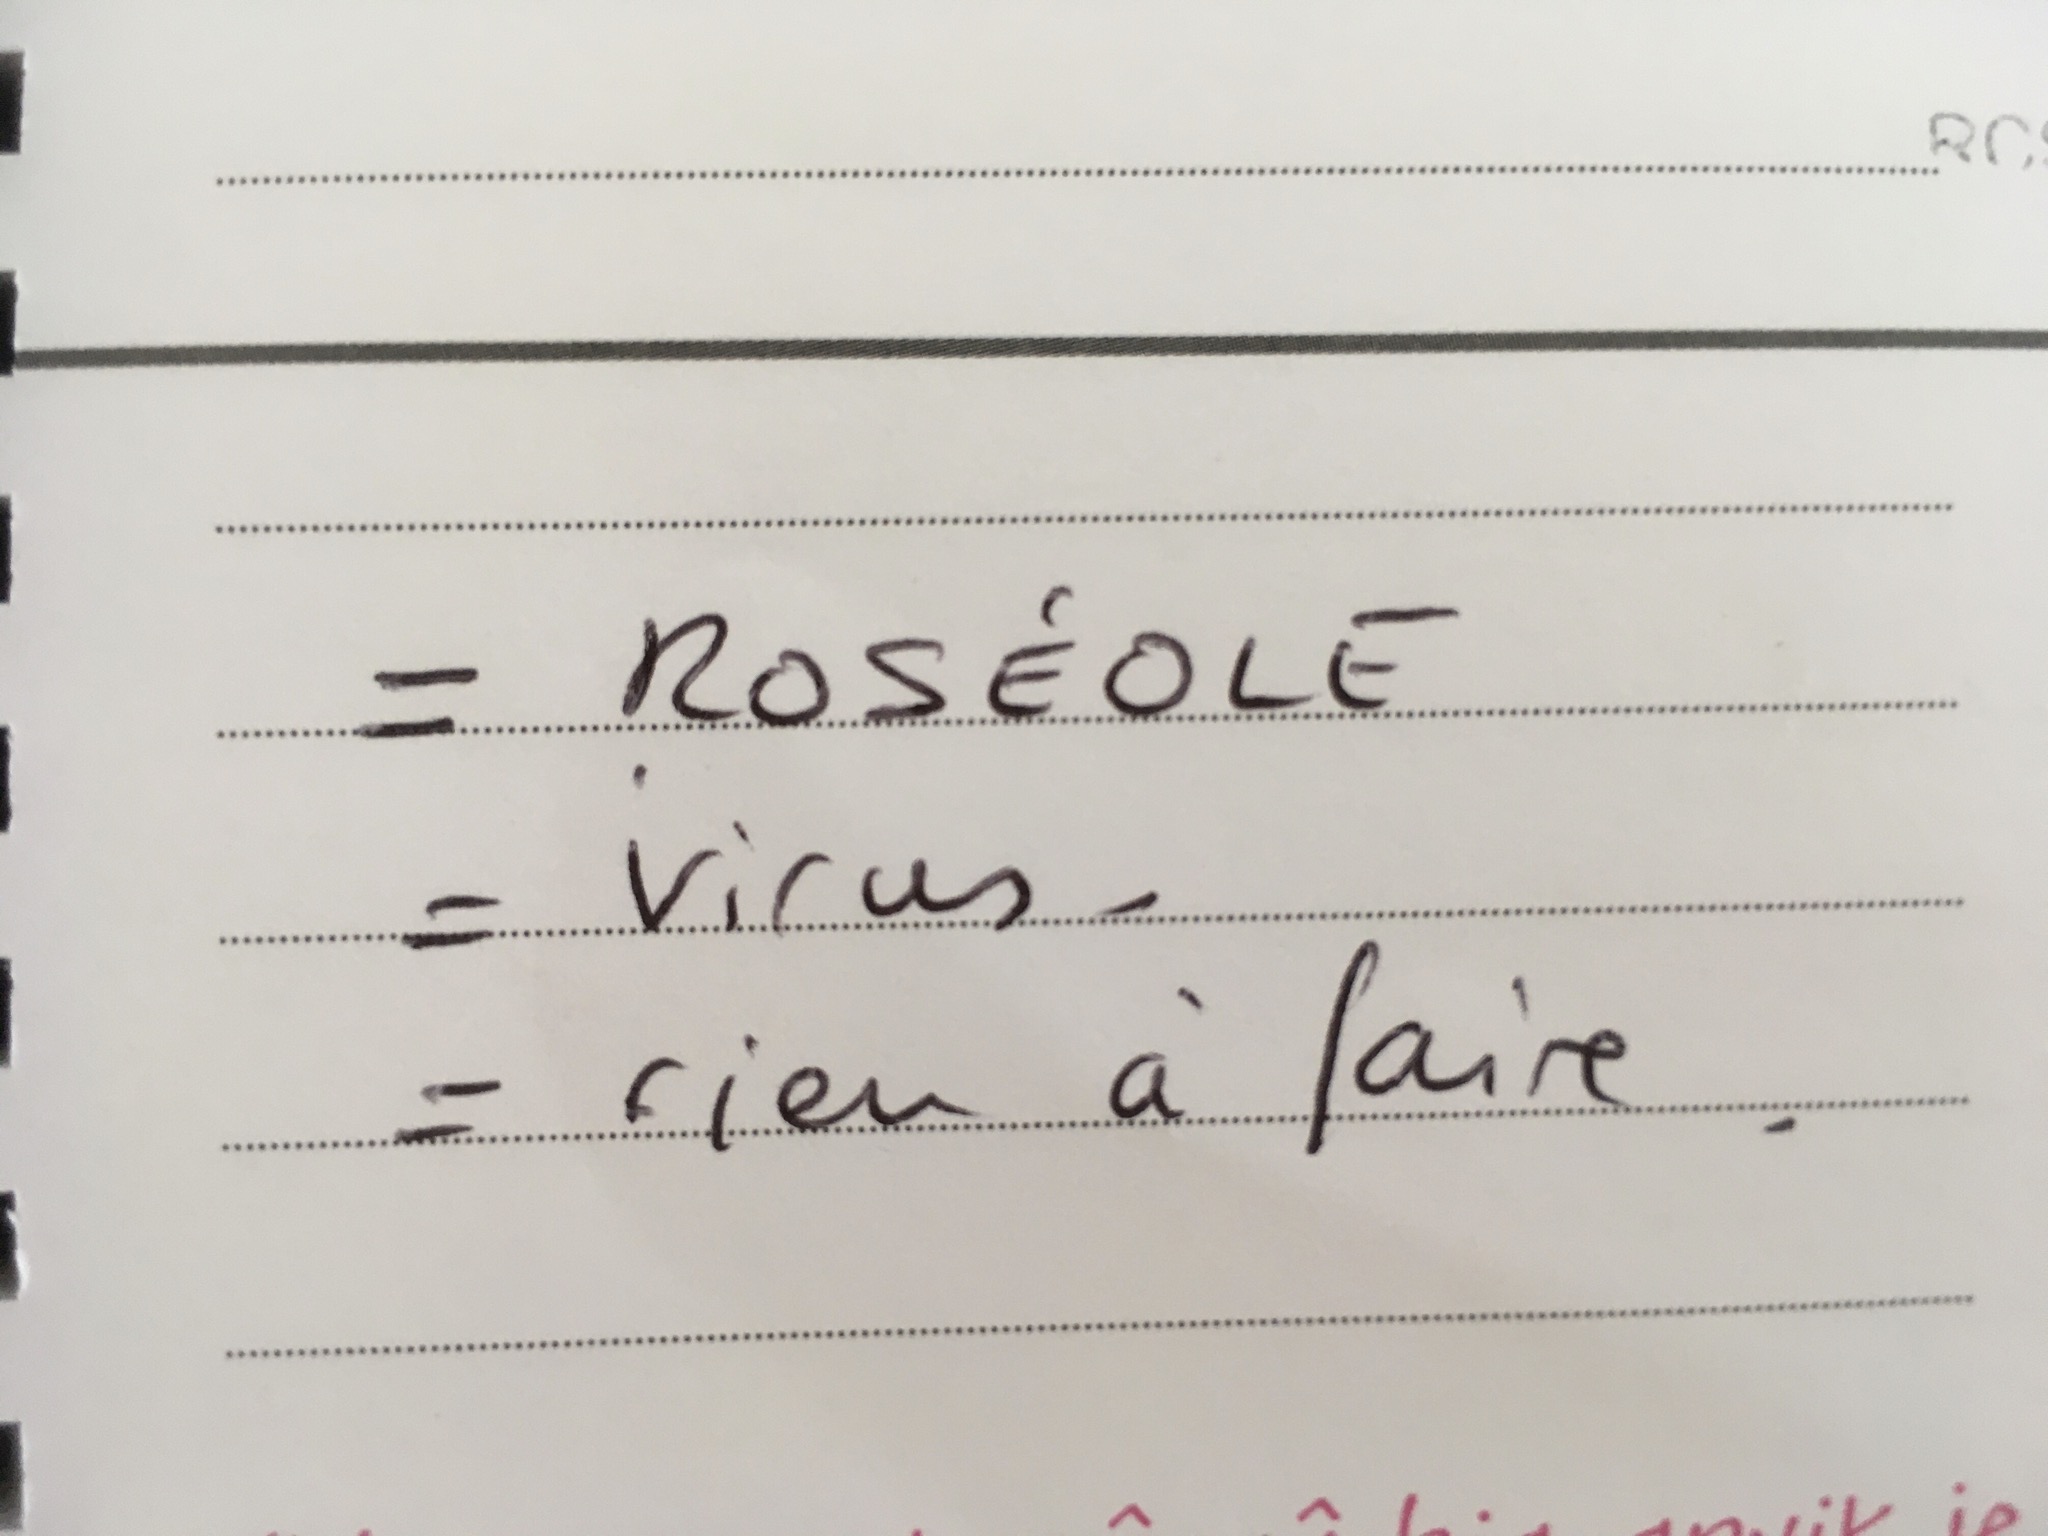 = ROSÉOLE
= virus -
= rien à faire.